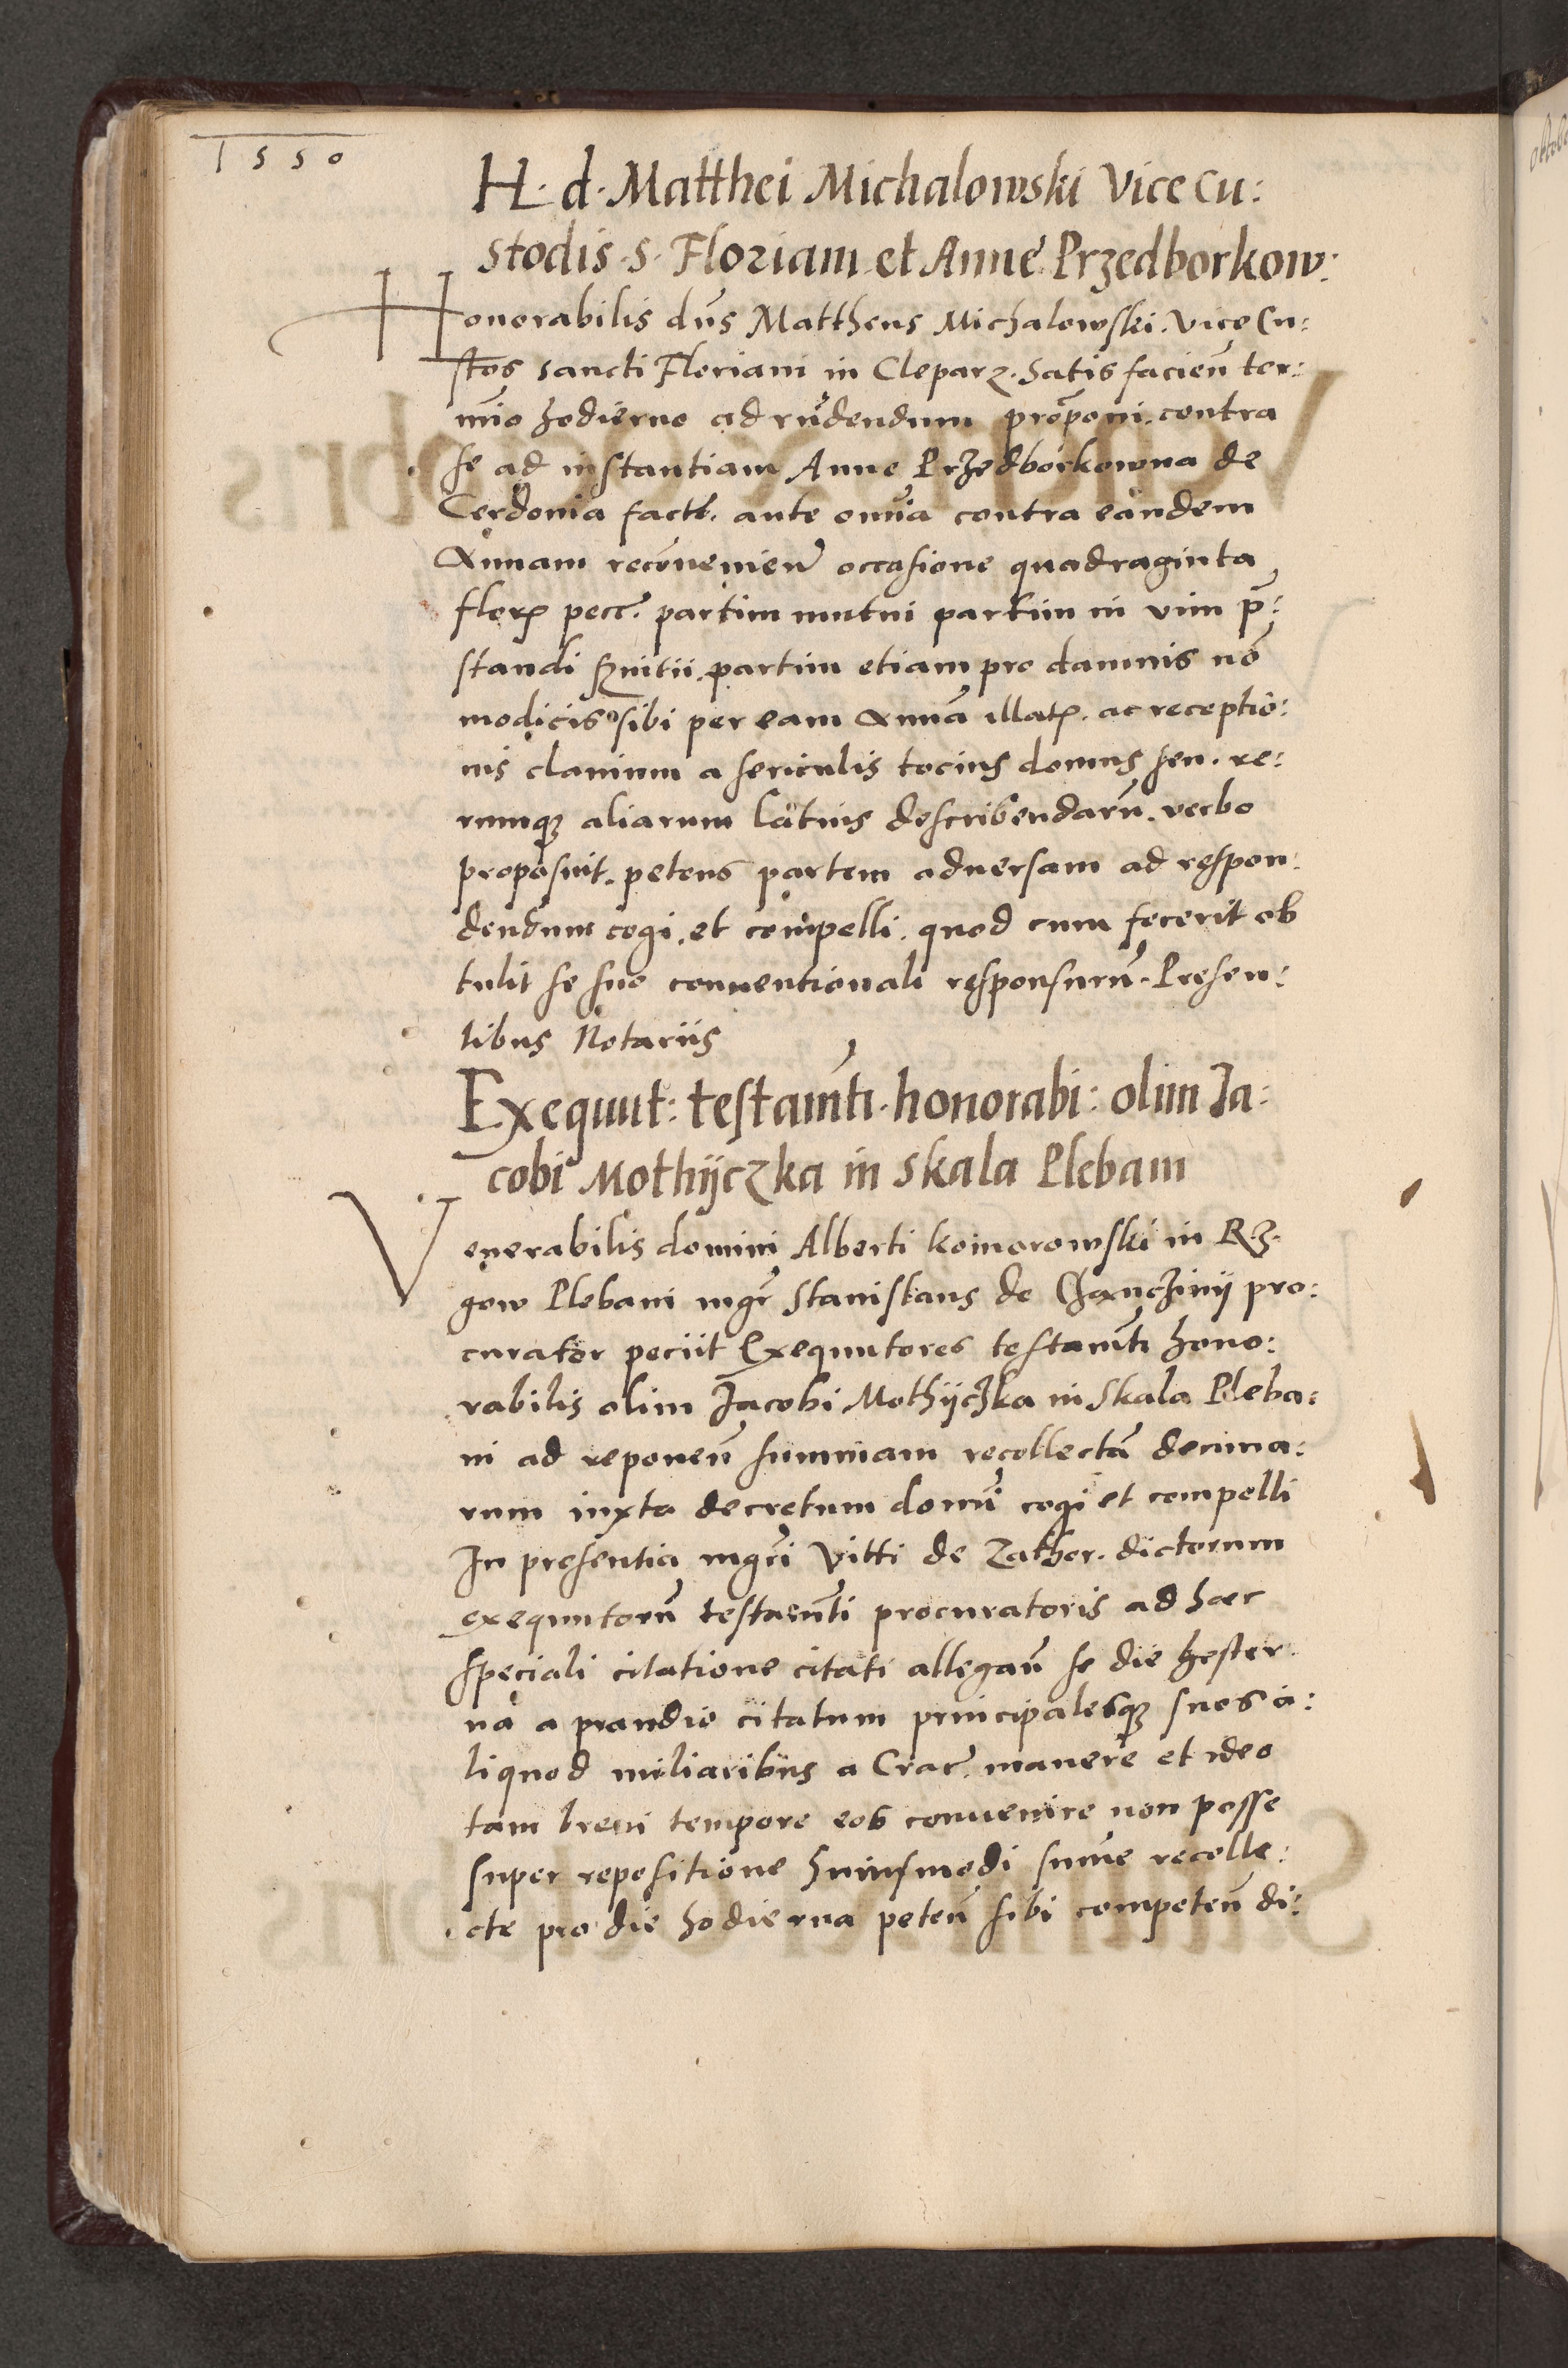 1550
H. d. Matthei Michalowski Vice Cu:
stodis. S. Floriani et Anne Przedborkow:
Honorabilis dns Mattheus Michalowski. Vice Cu:
stos sancti Floriani in Cleparz. satis facien ter:
mio hodierno ad rudendum proponi. contra
se ad instantiam Anne Przedborkowna de
Cerdonia fact. ante omia contra eandem
Annam reconvenien occasione quadraginta
flor pecc. partim mutui partim in vim p:
standi svitii. partim etiam pro damnis no
modicis sibi per eam Anna illat. ac receptio:
nis clavium a sericulis tocius domus seu. re:
rumq aliarum latius describendaru. verbo
proposuit. petens partem adversam ad respon:
dendum cogi. et compelli. quod cum fecerit ob
tulit se suo conventionali responsuru. Presen:
tibus Notariis
Exequut: testamti. honorabi: olim Ja:
cobi Mothijczka in Skala Plebani
Venerabilis domini Alberti Komorowski in Rz.
gow Plebani mgr Stanislaus de pro:
curator peciit Exequutores testamti hono:
rabilis olim Jacobi Mothijczka in Skala Pleba:
ni ad reponen summam recollecta decima:
rum iuxta decretum domi cogi et compelli
In presentia mgri Vitti de Zather. dictorum
exequutoru testamti procuratoris ad hoc
speciali citatione citati allegan se die hester
na a prandio citatum principalesq suos a:
liquod miliaribus a Crac. manere et ideo
tam brevi tempore eos convenire non posse
super repositione huiusmodi sume recolle:
cte pro die hodierna peten sibi competen di: